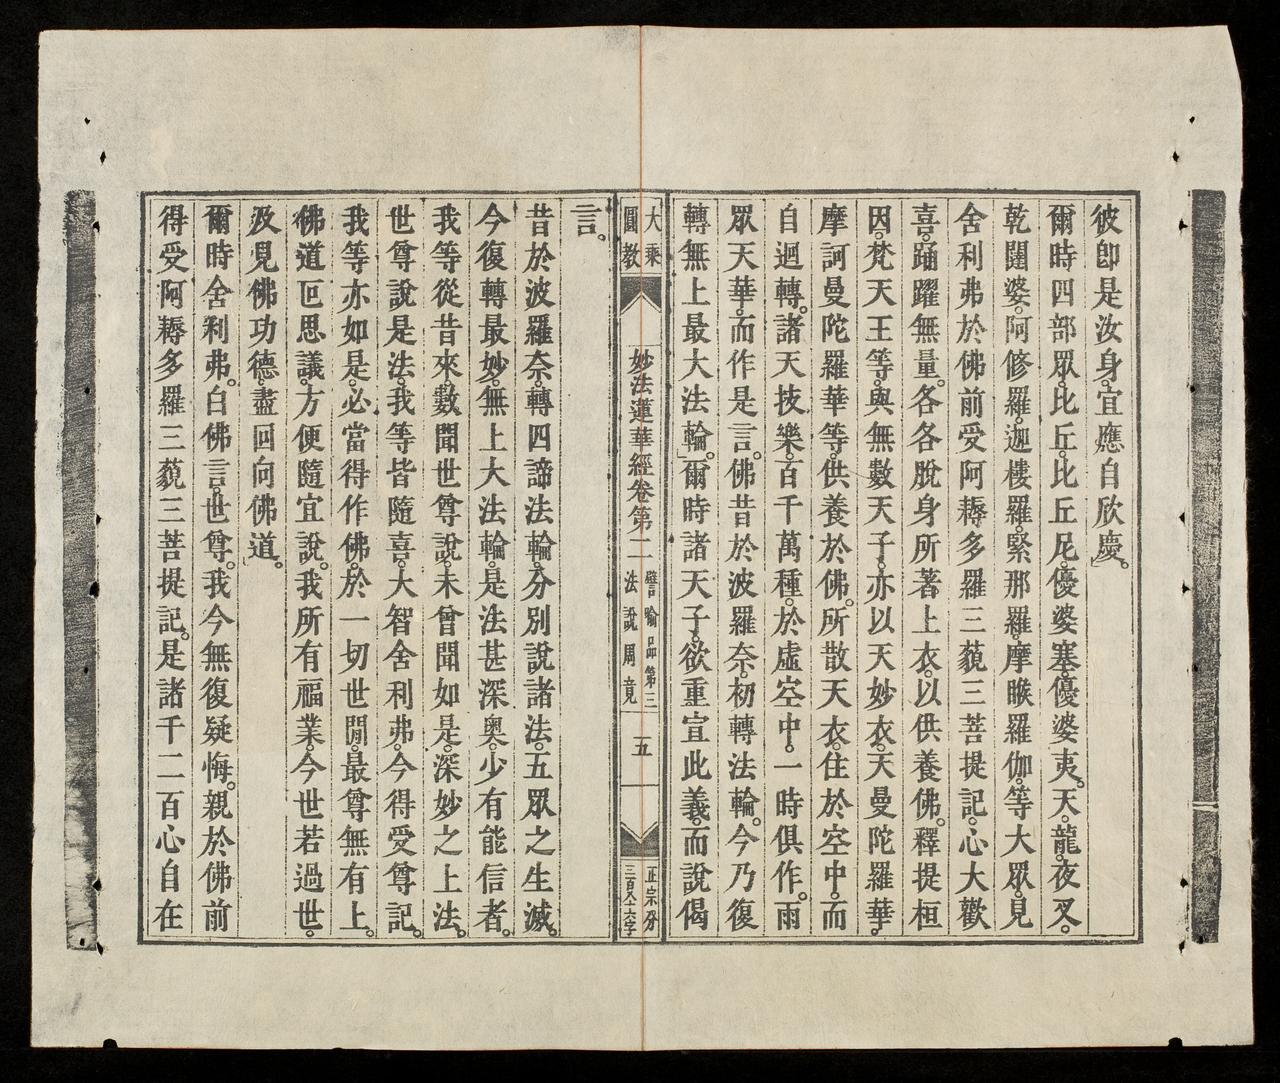 彼即是汝身。宜應自欣慶。
爾時四部眾。比丘。比丘尼。優婆塞。優婆夷。天。龍。夜叉。
乾闥婆。阿修羅。迦樓羅。緊那羅。摩睺羅伽。等大眾。見
舍利弗於佛前受阿耨多羅三藐三菩提記。心大歡
喜。踊躍無量。各各脫身所著上衣。以供養佛。釋提桓
因。梵天王等。與無數天子。亦以天妙衣。天曼陀羅華。
摩訶曼陀羅華等。供養於佛。所散天衣。住於空中。而
自迴轉。諸天技樂。百千萬種。於虛空中。一時俱作。雨
眾天華。而作是言。佛昔於波羅奈。初轉法輪。今乃復
轉無上最大法輪。爾時諸天子。欲重宣此義。而說偈
大乘
圓教
妙法蓮華經卷第二
譬喻品第三
法說周竟
五
正宗分
言。
昔於波羅奈。轉四諦法輪。分別說諸法。五眾之生滅。
今復轉最妙。無上大法輪。是法甚深奧。少有能信者。
我等從昔來。數聞世尊說。未曾聞如是。深妙之上法。
世尊說是法。我等皆隨喜。大智舍利弗。今得受尊記。
我等亦如是。必當得作佛。於一切世間。最尊無有上。
佛道叵思議。方便隨宜說。我所有福業。今世若過世。
及見佛功德。盡回向佛道。
爾時舍利弗。白佛言。世尊。我今無復疑悔。親於佛前
得受阿耨多羅三藐三菩提記。是諸千二百心自在